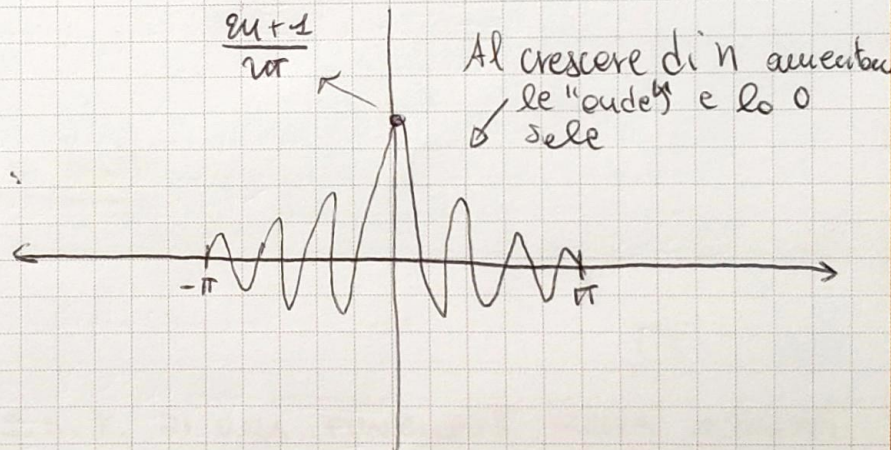 2n+1
2π
Al crescere di n aumentano
le "onde" e lo 0
sale
-π
π